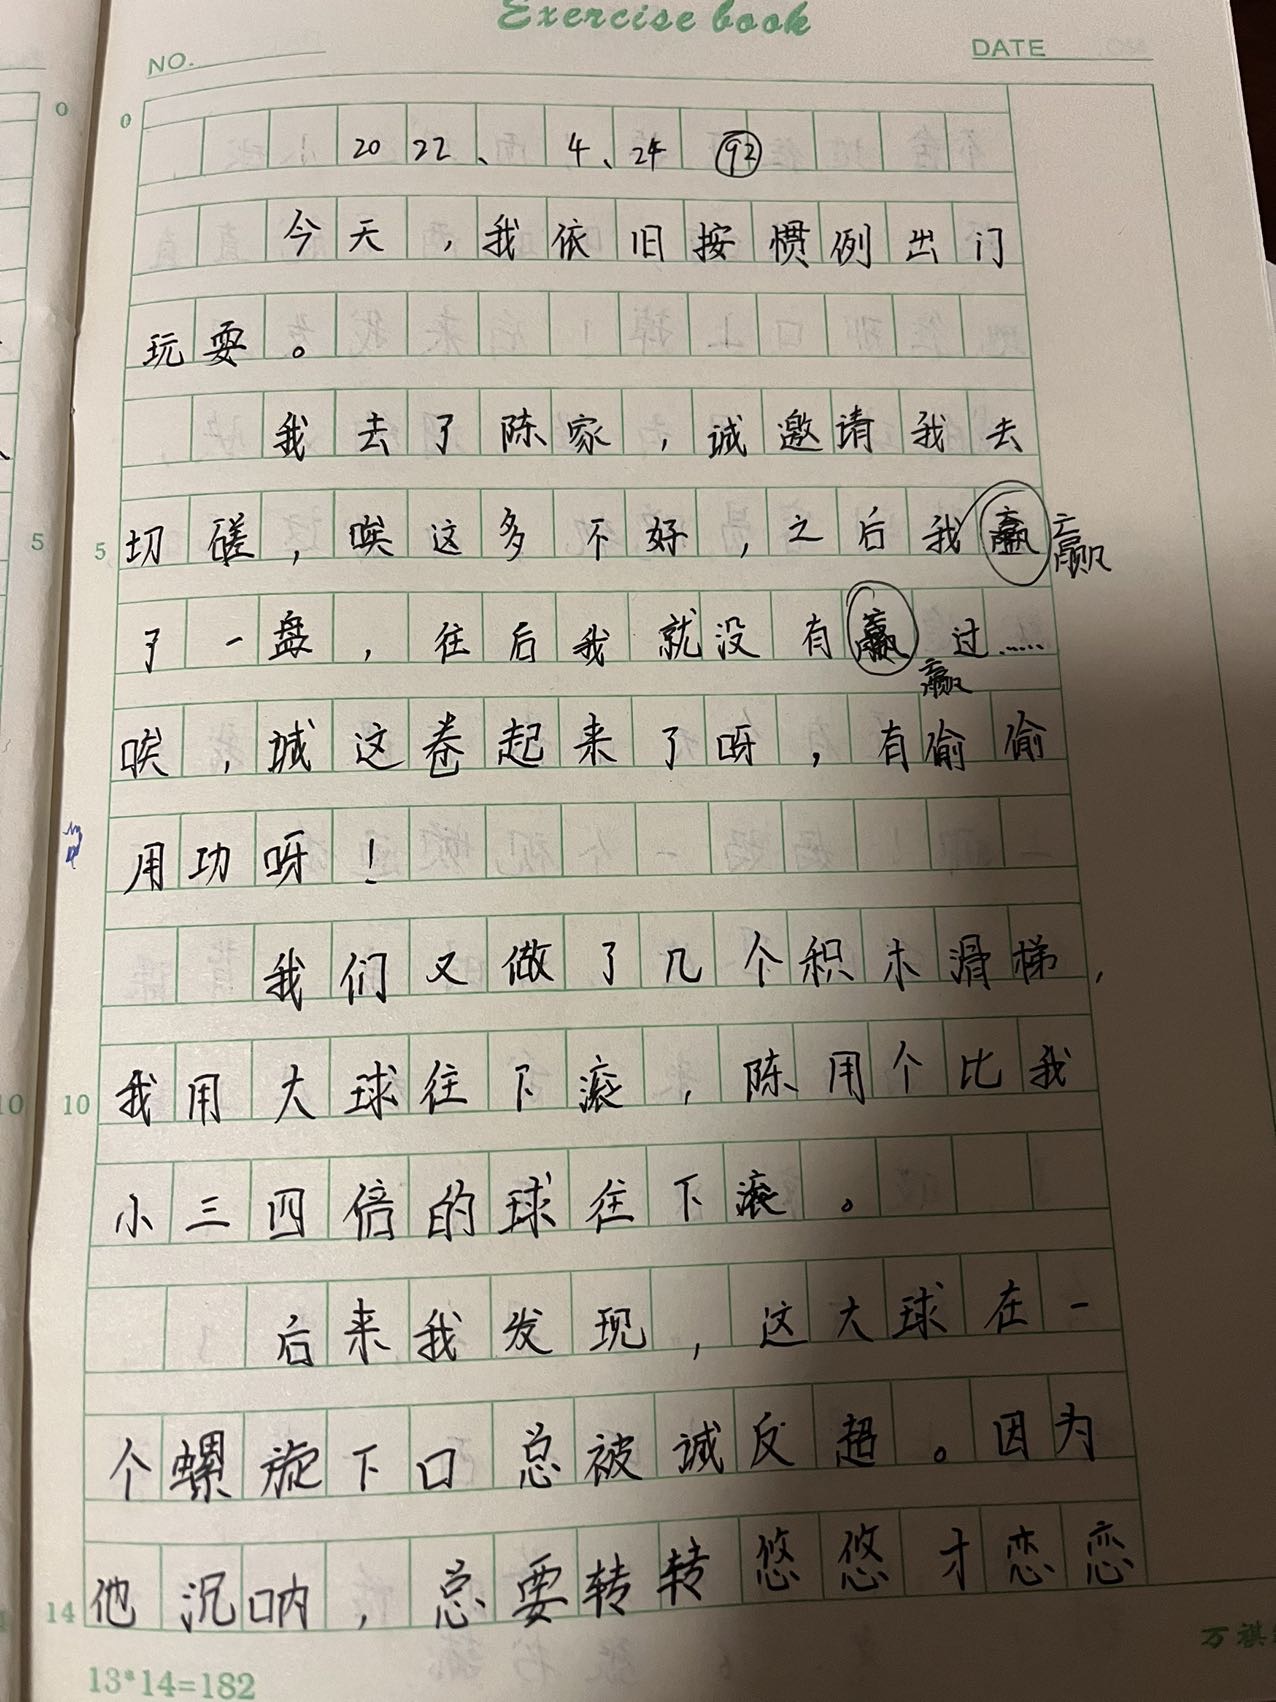 Exercise book
NO.
DATE
0
0
2022、4、24 92
今天，我依旧按惯例出门
玩耍。
我去了陈家，诚邀请我去
5
5
切磋，唉这多不好，之后我赢
赢
了一盘，往后我就没有赢过……
赢
唉，诚这卷起来了呀，有偷偷
用功呀！
我们又做了几个积木滑梯，
10
10
我用大球往下滚，陈用个比我
小三四倍的球往下滚。
后来我发现，这大球在一
个螺旋下口总被诚反超。因为
14
他沉呐，总要转转悠悠才恋恋
13*14=182